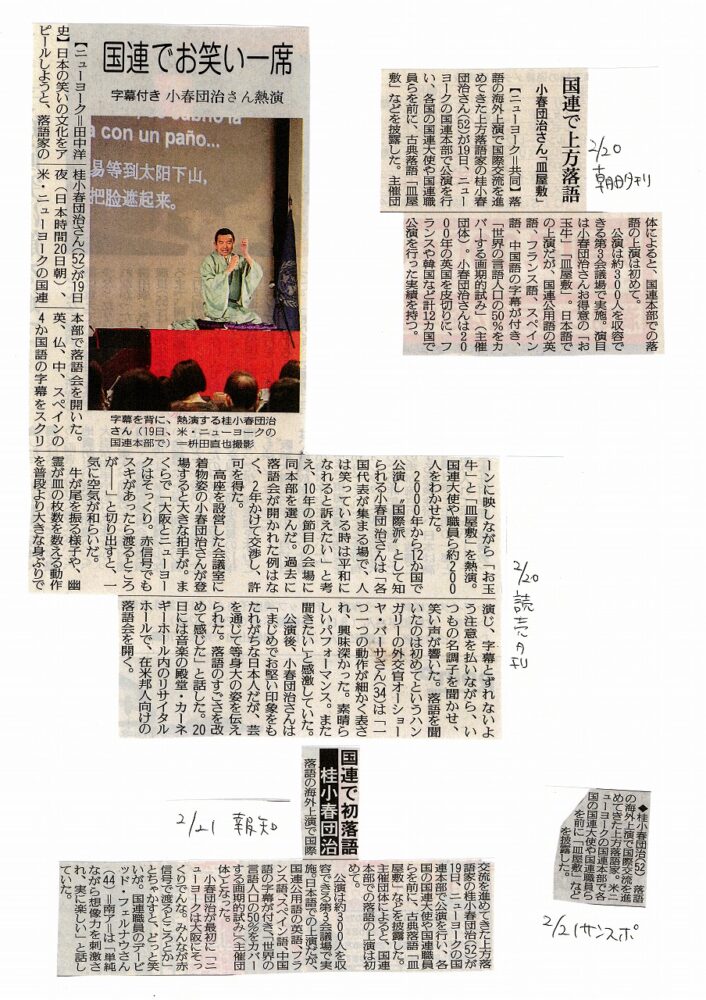 国連でお笑い一席
字幕付き 小春団治さん熱演
a con un paño...
易等到太阳下山,
把脸遮起来。
字幕を背に、熱演する桂小春団治
さん(19日、米・ニューヨークの
国連本部で)=枡田直也撮影
【ニューヨーク=田中洋
史】日本の笑いの文化をア
ピールしようと、落語家の
桂小春団治さん(52)が19日
夜(日本時間20日朝)、
米・ニューヨークの国連
本部で落語会を開いた。
英、仏、中、スペインの
4か国語の字幕をスクリ
ーンに映しながら「お玉
牛」と「皿屋敷」を熱演。
国連大使や職員ら約200
人をわかせた。
2000年から12か国で
公演し〝国際派〟として知
られる小春団治さんは「各
国代表が集まる場で、人
は笑っている時は平和に
なれると訴えたい」と考
え、10年の節目の会場に
同本部を選んだ。過去に
落語会が開かれた例はな
く、2年かけて交渉し、許
可を得た。
高座を設営した会議室に
着物姿の小春団治さんが登
場すると大きな拍手が。ま
くらで「大阪とニューヨー
クはそっくり。赤信号でも
スキがあったら渡るところ
が――」と切り出すと、一
気に空気が和らいだ。
牛が尾を振る様子や、幽
霊が皿の枚数を数える動作
を普段より大きな身ぶりで
演じ、字幕とずれないよ
う注意を払いながら、い
つもの名調子を聞かせ、
笑い声が響いた。落語を聞
いたのは初めてというハン
ガリーの外交官オーショー
ヤ・バーサさん(34)は「一
つ一つの動作が細かく表さ
れ、興味深かった。素晴ら
しいパフォーマンス。また
聞きたい」と感激していた。
公演後、小春団治さんは
「まじめでお堅い印象をも
たれがちな日本人だが、芸
を通じて等身大の姿を伝え
られた。落語のすごさを改
めて感じた」と話した。20
日には音楽の殿堂・カーネ
ギーホール内のリサイタル
ホールで、在米邦人向けの
落語会を開く。
2/20
読売夕刊
国連で上方落語
小春団治さん「皿屋敷」
【ニューヨーク=共同】落
語の海外上演で国際交流を進
めてきた上方落語家の桂小春
団治さん(52)が19日、ニュー
ヨークの国連本部で公演を行
い、各国の国連大使や国連職
員らを前に、古典落語「皿屋
敷」などを披露した。主催団
体によると、国連本部での落
語の上演は初めて。
公演は約300人を収容で
きる第3会議場で実施。演目
は小春団治さんお得意の「お
玉牛」「皿屋敷」。日本語で
の上演だが、国連公用語の英
語、フランス語、スペイン
語、中国語の字幕が付き、
「世界の言語人口の50%をカ
バーする画期的試み」(主催
団体)。小春団治さんは20
00年の英国を皮切りに、フ
ランスや韓国など計12カ国で
公演を行った実績を持つ。
2/20
朝日夕刊
2/21 報知
国連で初落語
桂小春団治
落語の海外上演で国際
交流を進めてきた上方落
語家の桂小春団治(52)が
19日、ニューヨークの国
連本部で公演を行い、各
国の国連大使や国連職員
らを前に、古典落語「皿
屋敷」などを披露した。
主催団体によると、国連
本部での落語の上演は初
めて。
公演は約300人を収
容できる第3会議場で実
施。日本語での上演だが、
国連公用語の英語、フラ
ンス語、スペイン語、中国
語の字幕が付き、「世界の
言語人口の50%をカバー
する画期的試み」(主催団
体)となった。
小春団治が最初に「ニ
ューヨークは大阪にそっ
くりでんな。みんなが赤
信号で渡るところとか」
とちゃかすと、どっと笑
いが。国連職員のデービ
ッド・フェルナウさん
(44)=南ア=は「単純
ながら想像力を刺激さ
れ、実に楽しい」と話し
ていた。
◆桂小春団治(52) 落語
の海外上演で国際交流を進
めてきた上方落語家。米ニ
ューヨークの国連本部で各
国の国連大使や国連職員ら
を前に「皿屋敷」など
を披露した。
2/21 サンスポ